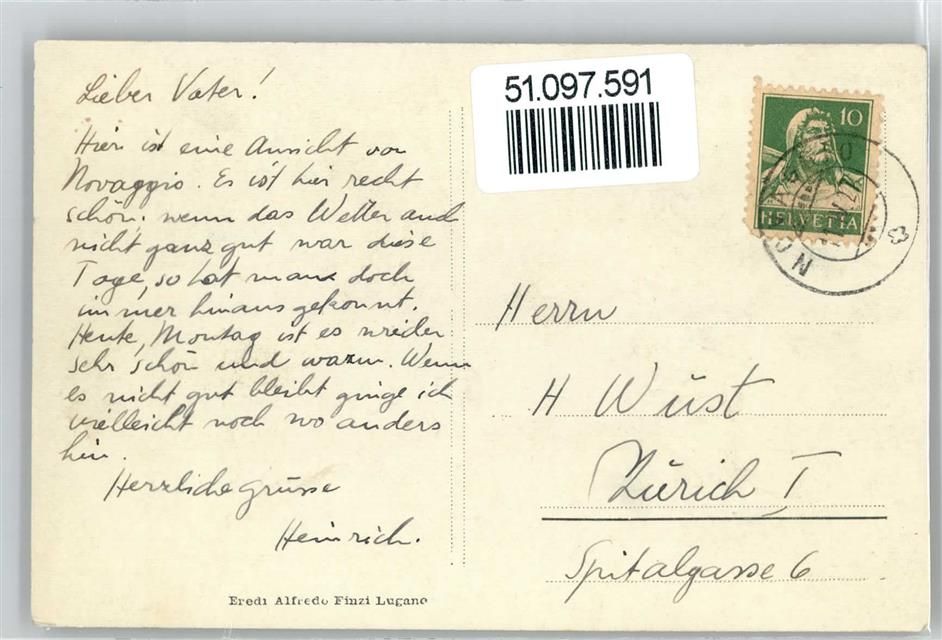 Lieber Vater!
Hier ist eine Ansicht von
Novaggio. Es ist hier recht
schön; wenn das Wetter auch
nicht ganz gut war diese
Tage, so hat man doch
immer hinaus gekonnt.
Heute, Montag ist es wieder
sehr schön und warm. Wenn
es nicht gut bleibt ginge ich
vielleicht noch wo anders
hin.
Herzliche Grüsse
Heinrich.
Eredi Alfredo Finzi Lugano
51.097.591
10
HELVETIA
Herrn
H Wüst
Zürich I
Spitalgasse 6